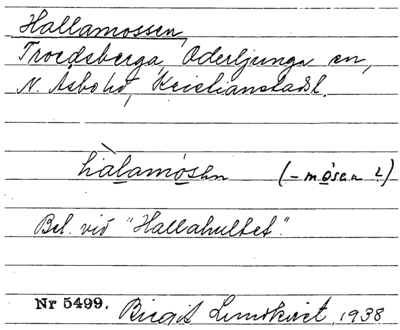 Hallamossen,
Troedsberga, Oderljunga sn,
N. Åsbo hd, Kristianstads l.
hàlamósen (-mósen ?)
Bel. vid "Hallahultet".
Nr 5499. Birgit Lundkvist, 1938